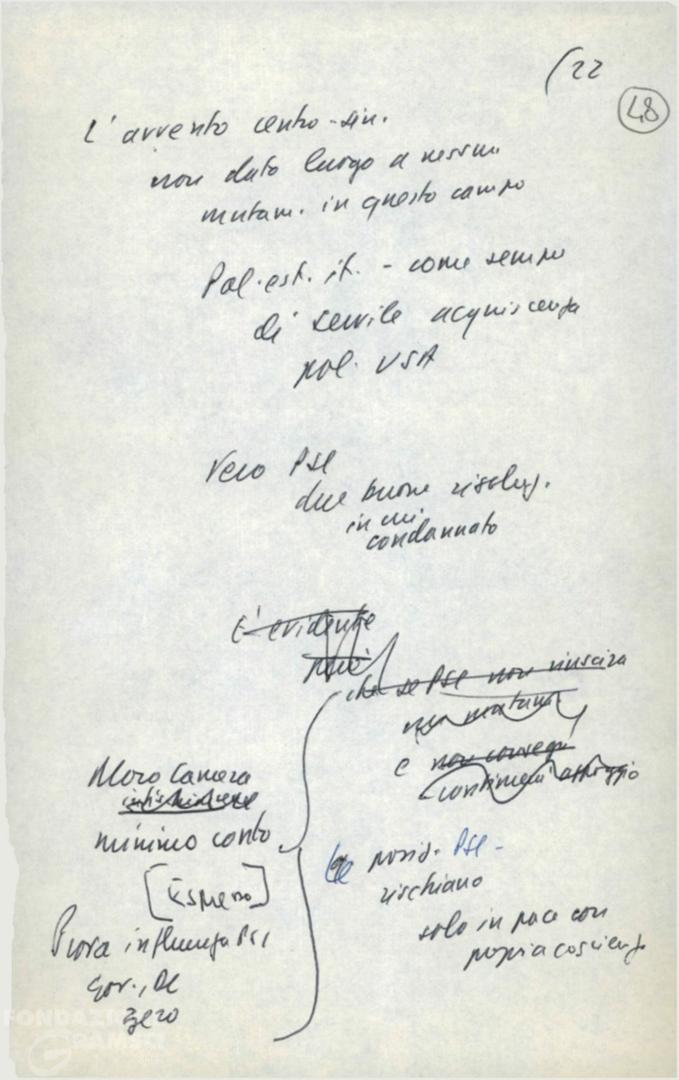 (22
48
L'avvento centro-sin.
non dato luogo a nessun
mutam. in questo campo
Pol. est. it. - come sempre
di servile acquiscenza
pol. USA
Vero PSI
due buone risoluz.
in cui
condannato
E' evidente
che se PSI non riuscira
non mutam
e non conseg
continuerà appoggio
Moro Camera
minimo conto
[Espresso]
Prova influenza PSI
gov., DC
zero
Le posiz. PSI -
rischiano
solo in pace con
propria coscienza
FONDAZIONE
GRAMSCI